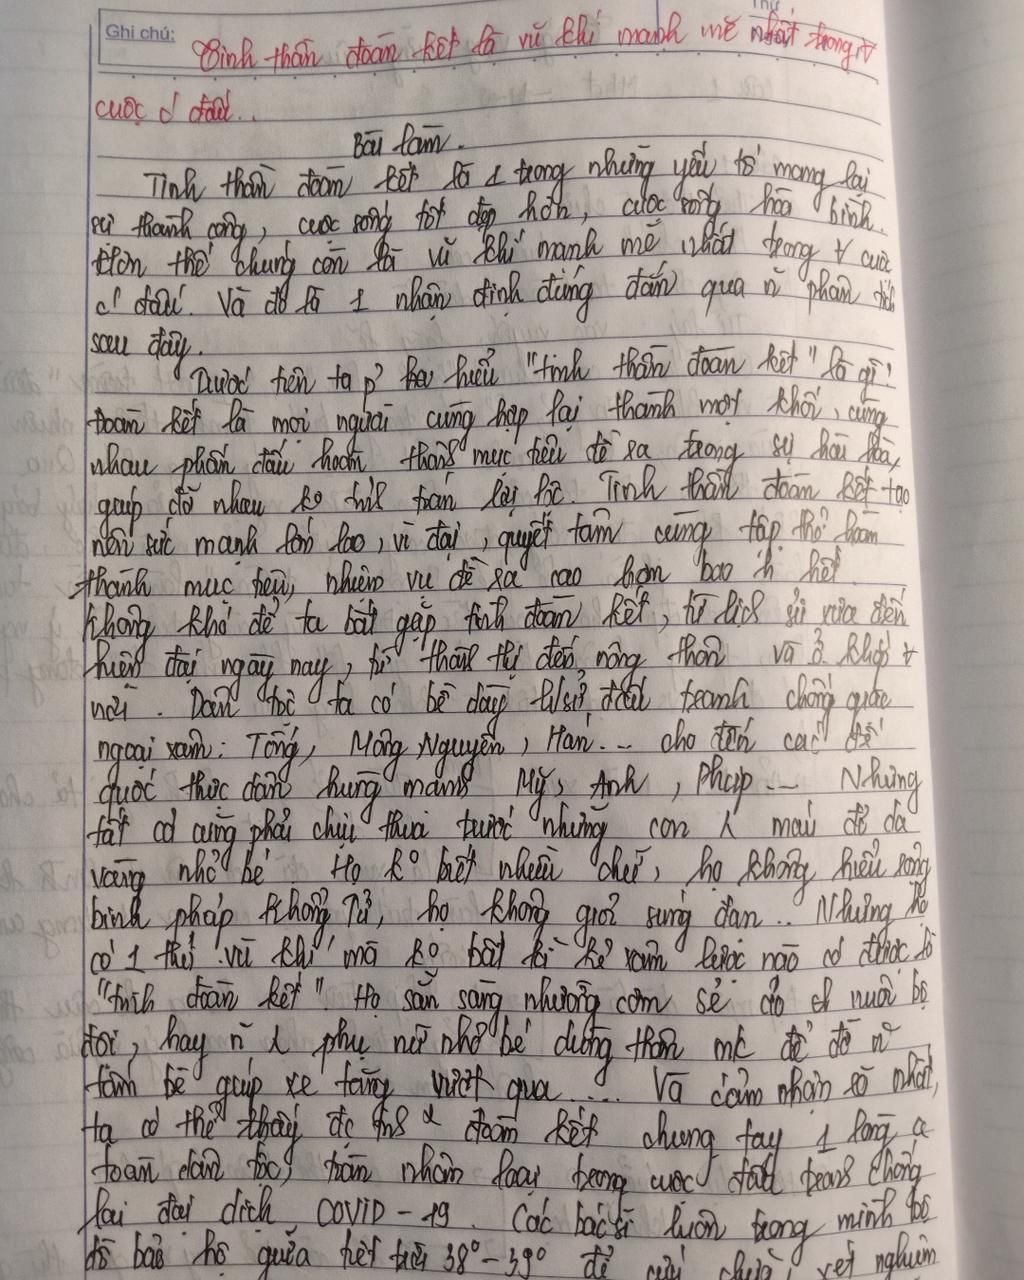 Ghi chú:
Thứ
Tinh thần đoàn kết là vũ khí mạnh mẽ nhất trong ∀
cuộc c' đấu..
Bài làm.
Tinh thần đoàn kết là 1 trong những yếu tố mang lại
sự thành công, cuộc sống tốt đẹp hơn, cuộc sống hòa bình.
Hơn thế chúng còn là vũ khí mạnh mẽ nhất trong ∀ cuộc
c' đấu. Và đó là 1 nhận định đúng đắn qua n~ phân tích
sau đây.
Trước tiên ta p' hiểu "tinh thần đoàn kết" là gì?
Đoàn kết là mọi người cùng hợp lại thành một khối, cùng
nhau phấn đấu hoàn thành mục tiêu đề ra trong sự hài hòa,
giúp đỡ nhau ko tính toán lợi lộc. Tinh thần đoàn kết tạo
nên sức mạnh lớn lao, vĩ đại, quyết tâm cùng tập thể hoàn
thành mục tiêu, nhiệm vụ đề ra cao hơn bao h hết
Không khó để ta bắt gặp tinh đoàn kết, từ lịch sử xưa đến
hiện đại ngày nay, từ thành thị đến nông thôn và ở khắp ∀
nơi. Dân tộc ta có bề dày l/sử đấu tranh chống quân
ngoại xâm: Tống, Mông Nguyên, Hán... cho đến các đế
quốc thực dân hùng mạnh Mỹ, Anh, Pháp... Nhưng
tất cả cũng phải chịu thua trước những con máu đỏ da
vàng nhỏ bé Họ ko biết nhiều chữ, họ không hiểu rộng
binh pháp Khổng Tử, họ không giỏi súng đạn.. Nhưng họ
có 1 thứ vũ khí mà ko bất kì kẻ xâm lược nào có được là
"tinh đoàn kết". Họ sẵn sàng nhường cơm sẻ áo nuôi bộ
đội, hay n~ phụ nữ nhỏ bé dùng thân mk để đỡ n~
tấm bê giúp xe tăng vượt qua.... Và cảm nhận rõ nhất,
ta có thể thấy đc đoàn kết chung tay 1 lòng
toàn dân tộc, toàn nhân loại trong cuộc đấu tranh chống
lại đại dịch COVID-19. Các bác sĩ luôn trong mình bộ
đồ bảo hộ giữa tiết trời 38°-39° để cứu chữa, xét nghiệm